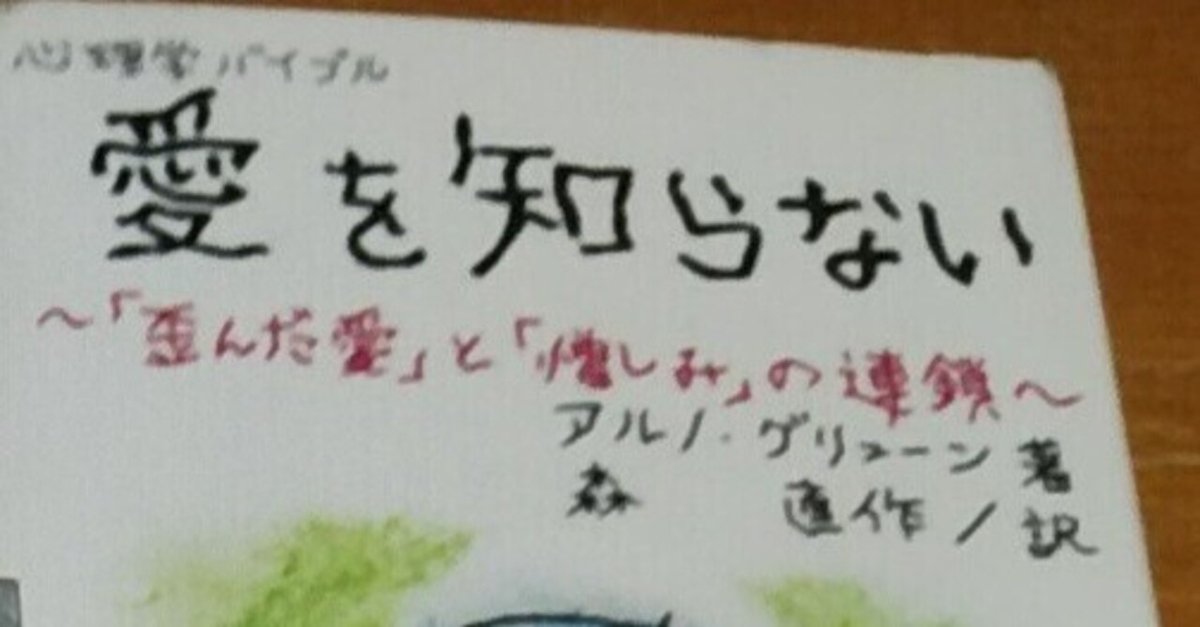 心理学バイブル
愛を知らない
～「歪んだ愛」と「憎しみ」の連鎖～
アルノ・グリューン著
森 直作/訳